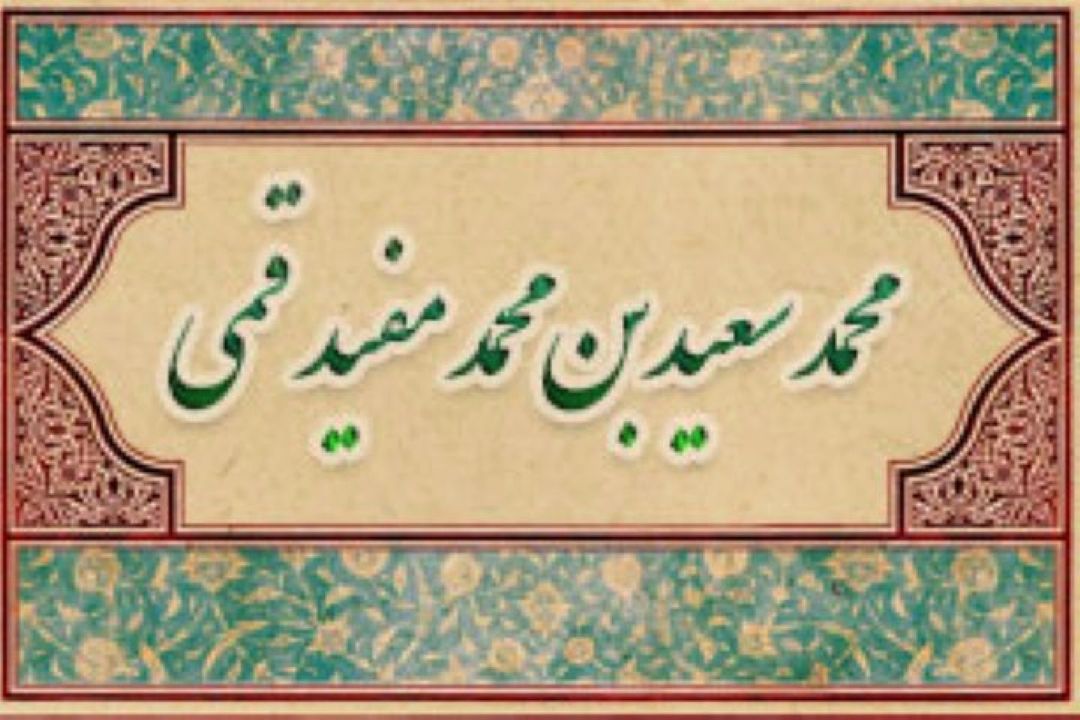 محمد سعید بن محمد مفید قمی